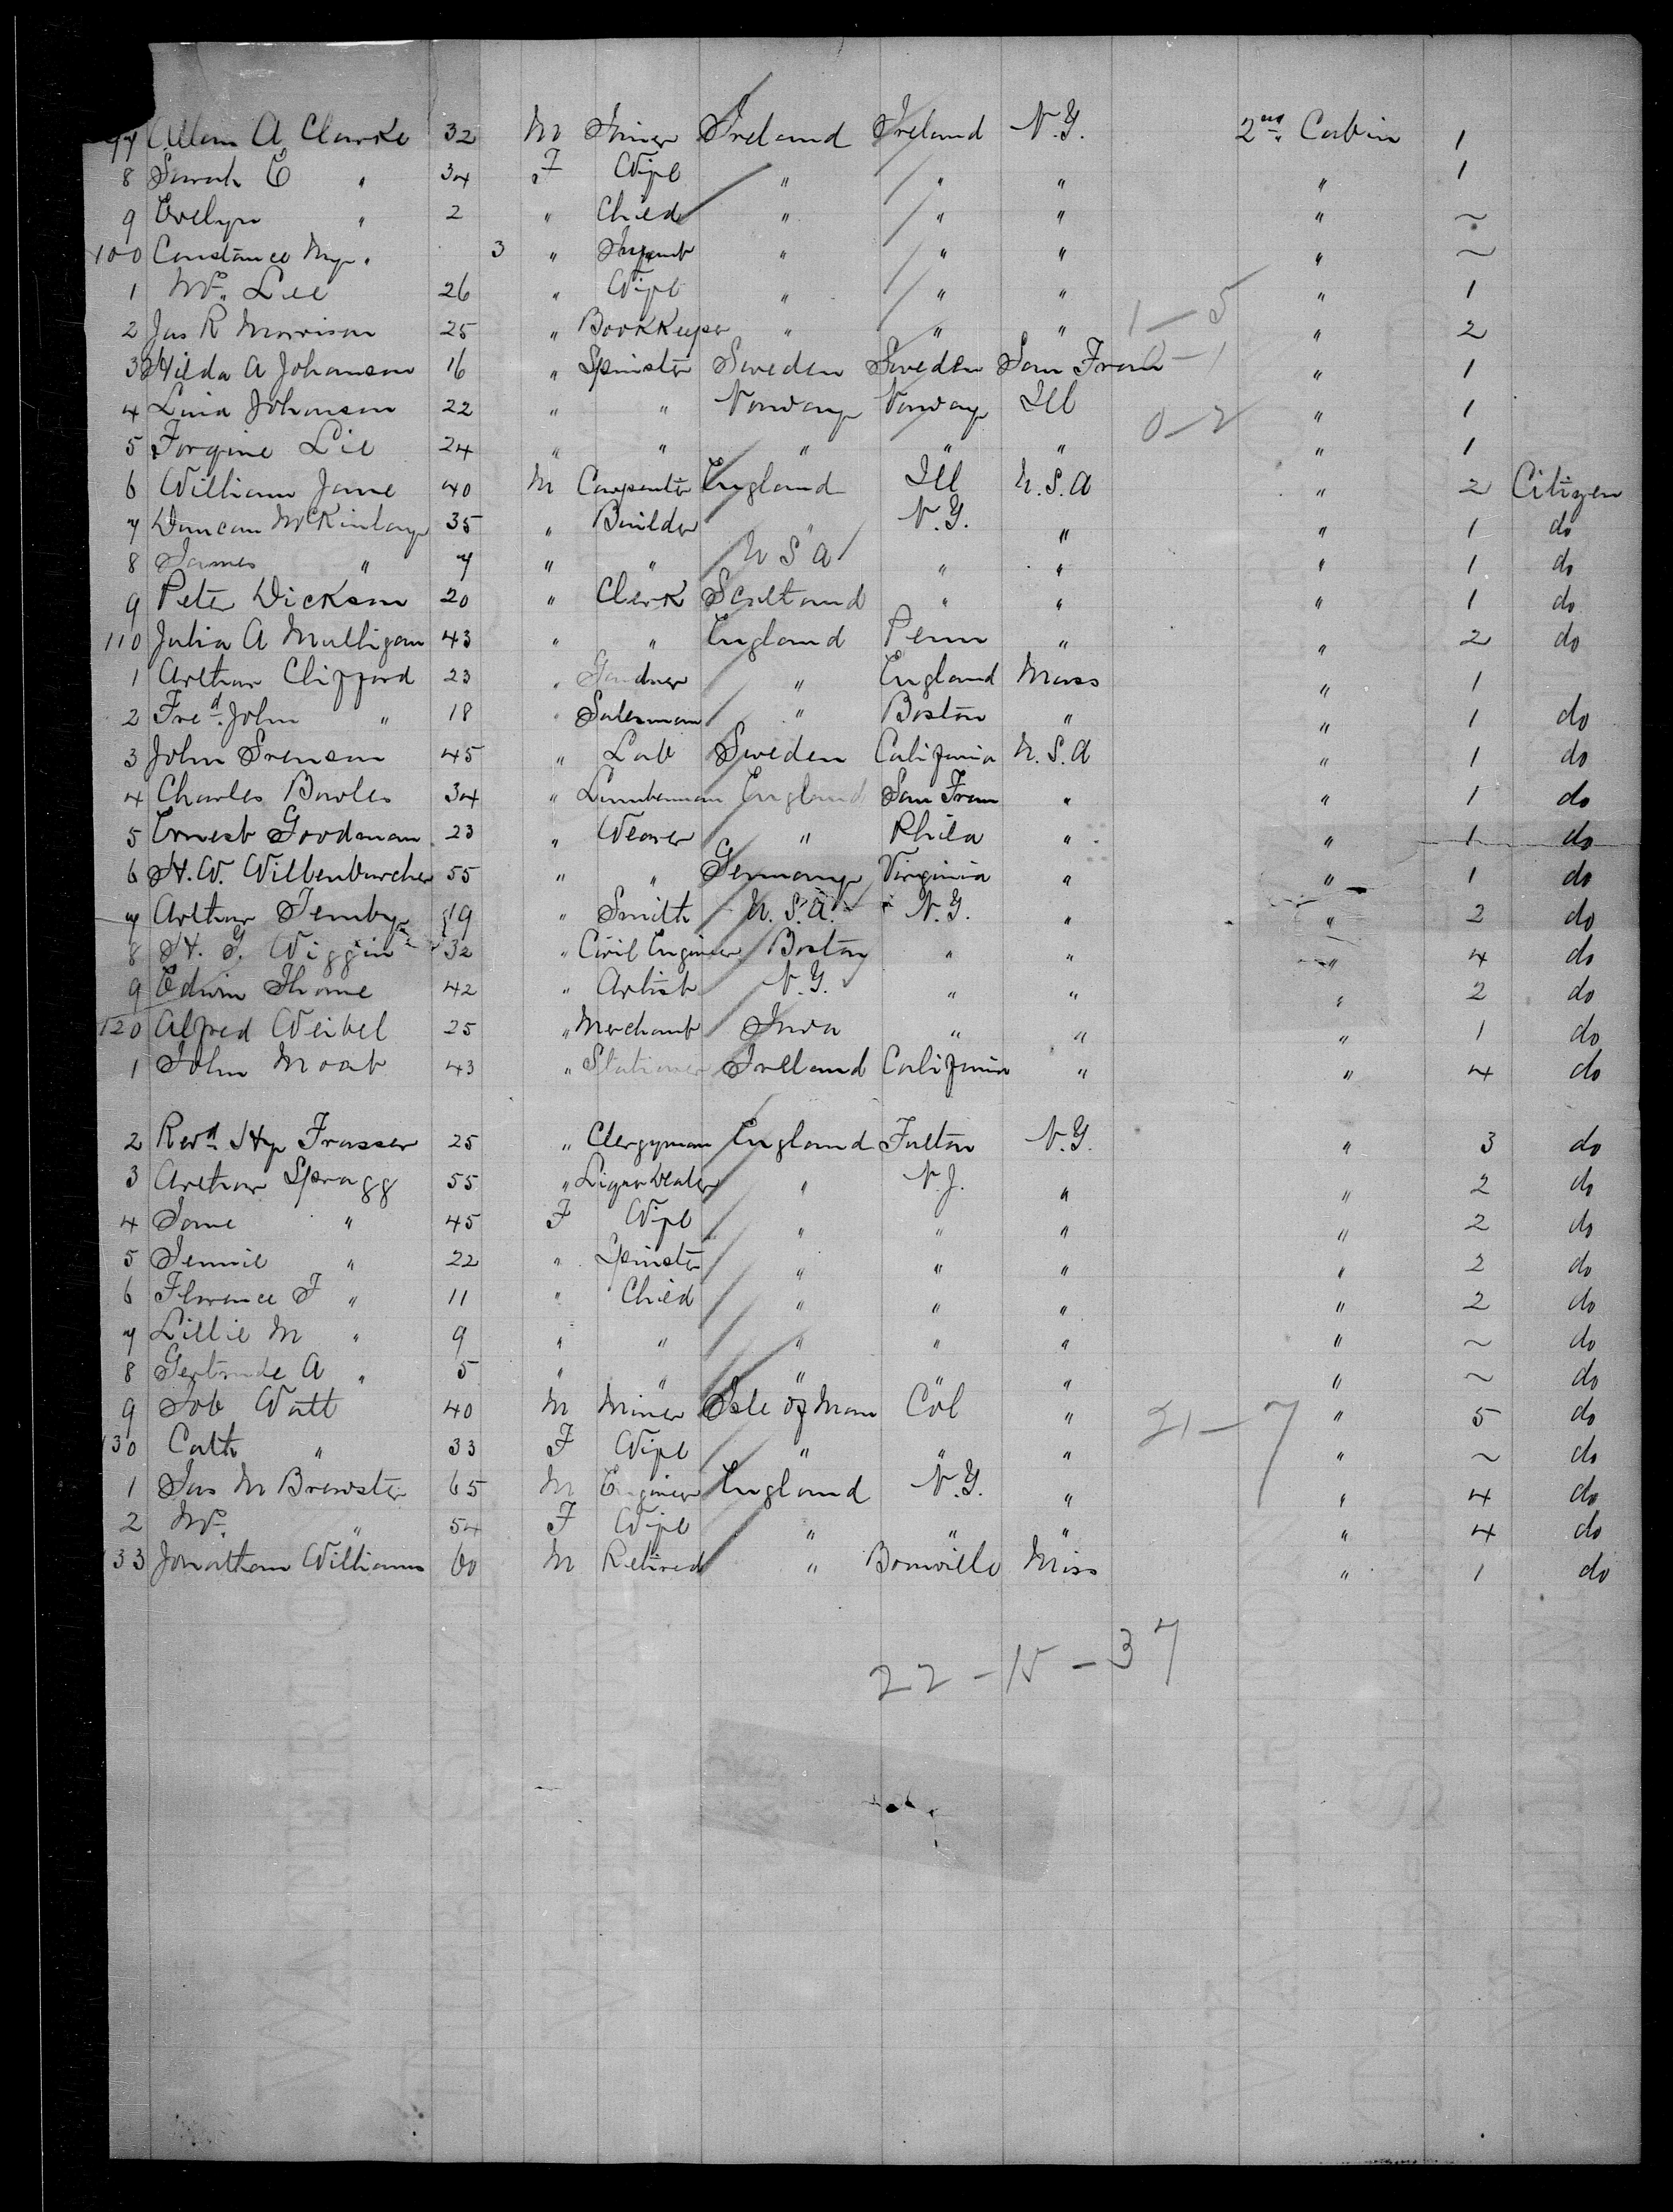 97 Allan A Clarke 32 M Miner Ireland Ireland N.Y. 2nd Cabin 1
8 Sarah E " 34 F Wife " " " " 1
9 Evelyn " 2 " Child " " " " ~
100 Constance My " 3 " Infant " " " " ~
1 Mrs. Lee 26 " Wife " " " " 1
2 Jas R Morrison 25 " Bookkeeper " " " 1-5 " 2
3 Hilda A Johanson 16 " Spinster Sweden Sweden San Fran 0-1 " 1
4 Lina Johanson 22 " " Norway Norway Ill " 1
5 Forgine Lie 24 " " " " " 0-2 " 1
6 William Jane 40 M Carpenter England Ill U.S.A " 2 Citizen
7 Duncan McKinlay 35 " Builder " N.Y. " " 1 do
8 James " 7 " " U S A " " " 1 do
9 Peter Dickson 20 " Clerk Scoltand " " " 1 do
110 Julia A Mulligan 43 " " England Penn " " 2 do
1 Arthur Clifford 23 " Gardner " England Mass " 1
2 Fred. John " 18 " Salesman " Boston " " 1 do
3 John Svenson 45 " Lab Sweden California U.S.A " 1 do
4 Charles Bowles 34 " Lumberman England San Fran " " 1 do
5 Ernest Goodman 23 " Weaver " Phila " " 1 do
6 H.W. 55 " " Germany Virginia " " 1 do
7 Arthur Temby 19 " Smith U.S.A. N.Y. " " 2 do
8 H. G. Wiggin 32 " Civil Engineer Boston " " " 4 do
9 Edwin Thorne 42 " Artist N.Y. " " " 2 do
120 Alfred Weibel 25 " Merchant Iowa " " " 1 do
1 John Moat 43 " Stationer Ireland California " " 4 do
2 Revd Hy Frasser 25 " Clergyman England Fulton N.Y. " 3 do
3 Arthur Spragg 55 " Liquor Dealer " N.J. " " 2 do
4 Jane " 45 F Wife " " " " 2 do
5 Jennie " 22 " Spinster " " " " 2 do
6 Florence F " 11 " Child " " " " 2 do
7 Lillie M " 9 " " " " " " ~ do
8 Gertrude A " 5 " " " " " " ~ do
9 Job Watt 40 M Miner Isle of Man Col " 21-7 " 5 do
130 Cath " 33 F Wife " " " " ~ do
1 Jas M Brewster 65 M Engineer England N.Y. " " 4 do
2 Mrs. " 54 F Wife " " " " 4 do
133 Jonathan Williams 60 M Retired " Bonville Miss " 1 do
22-15-37